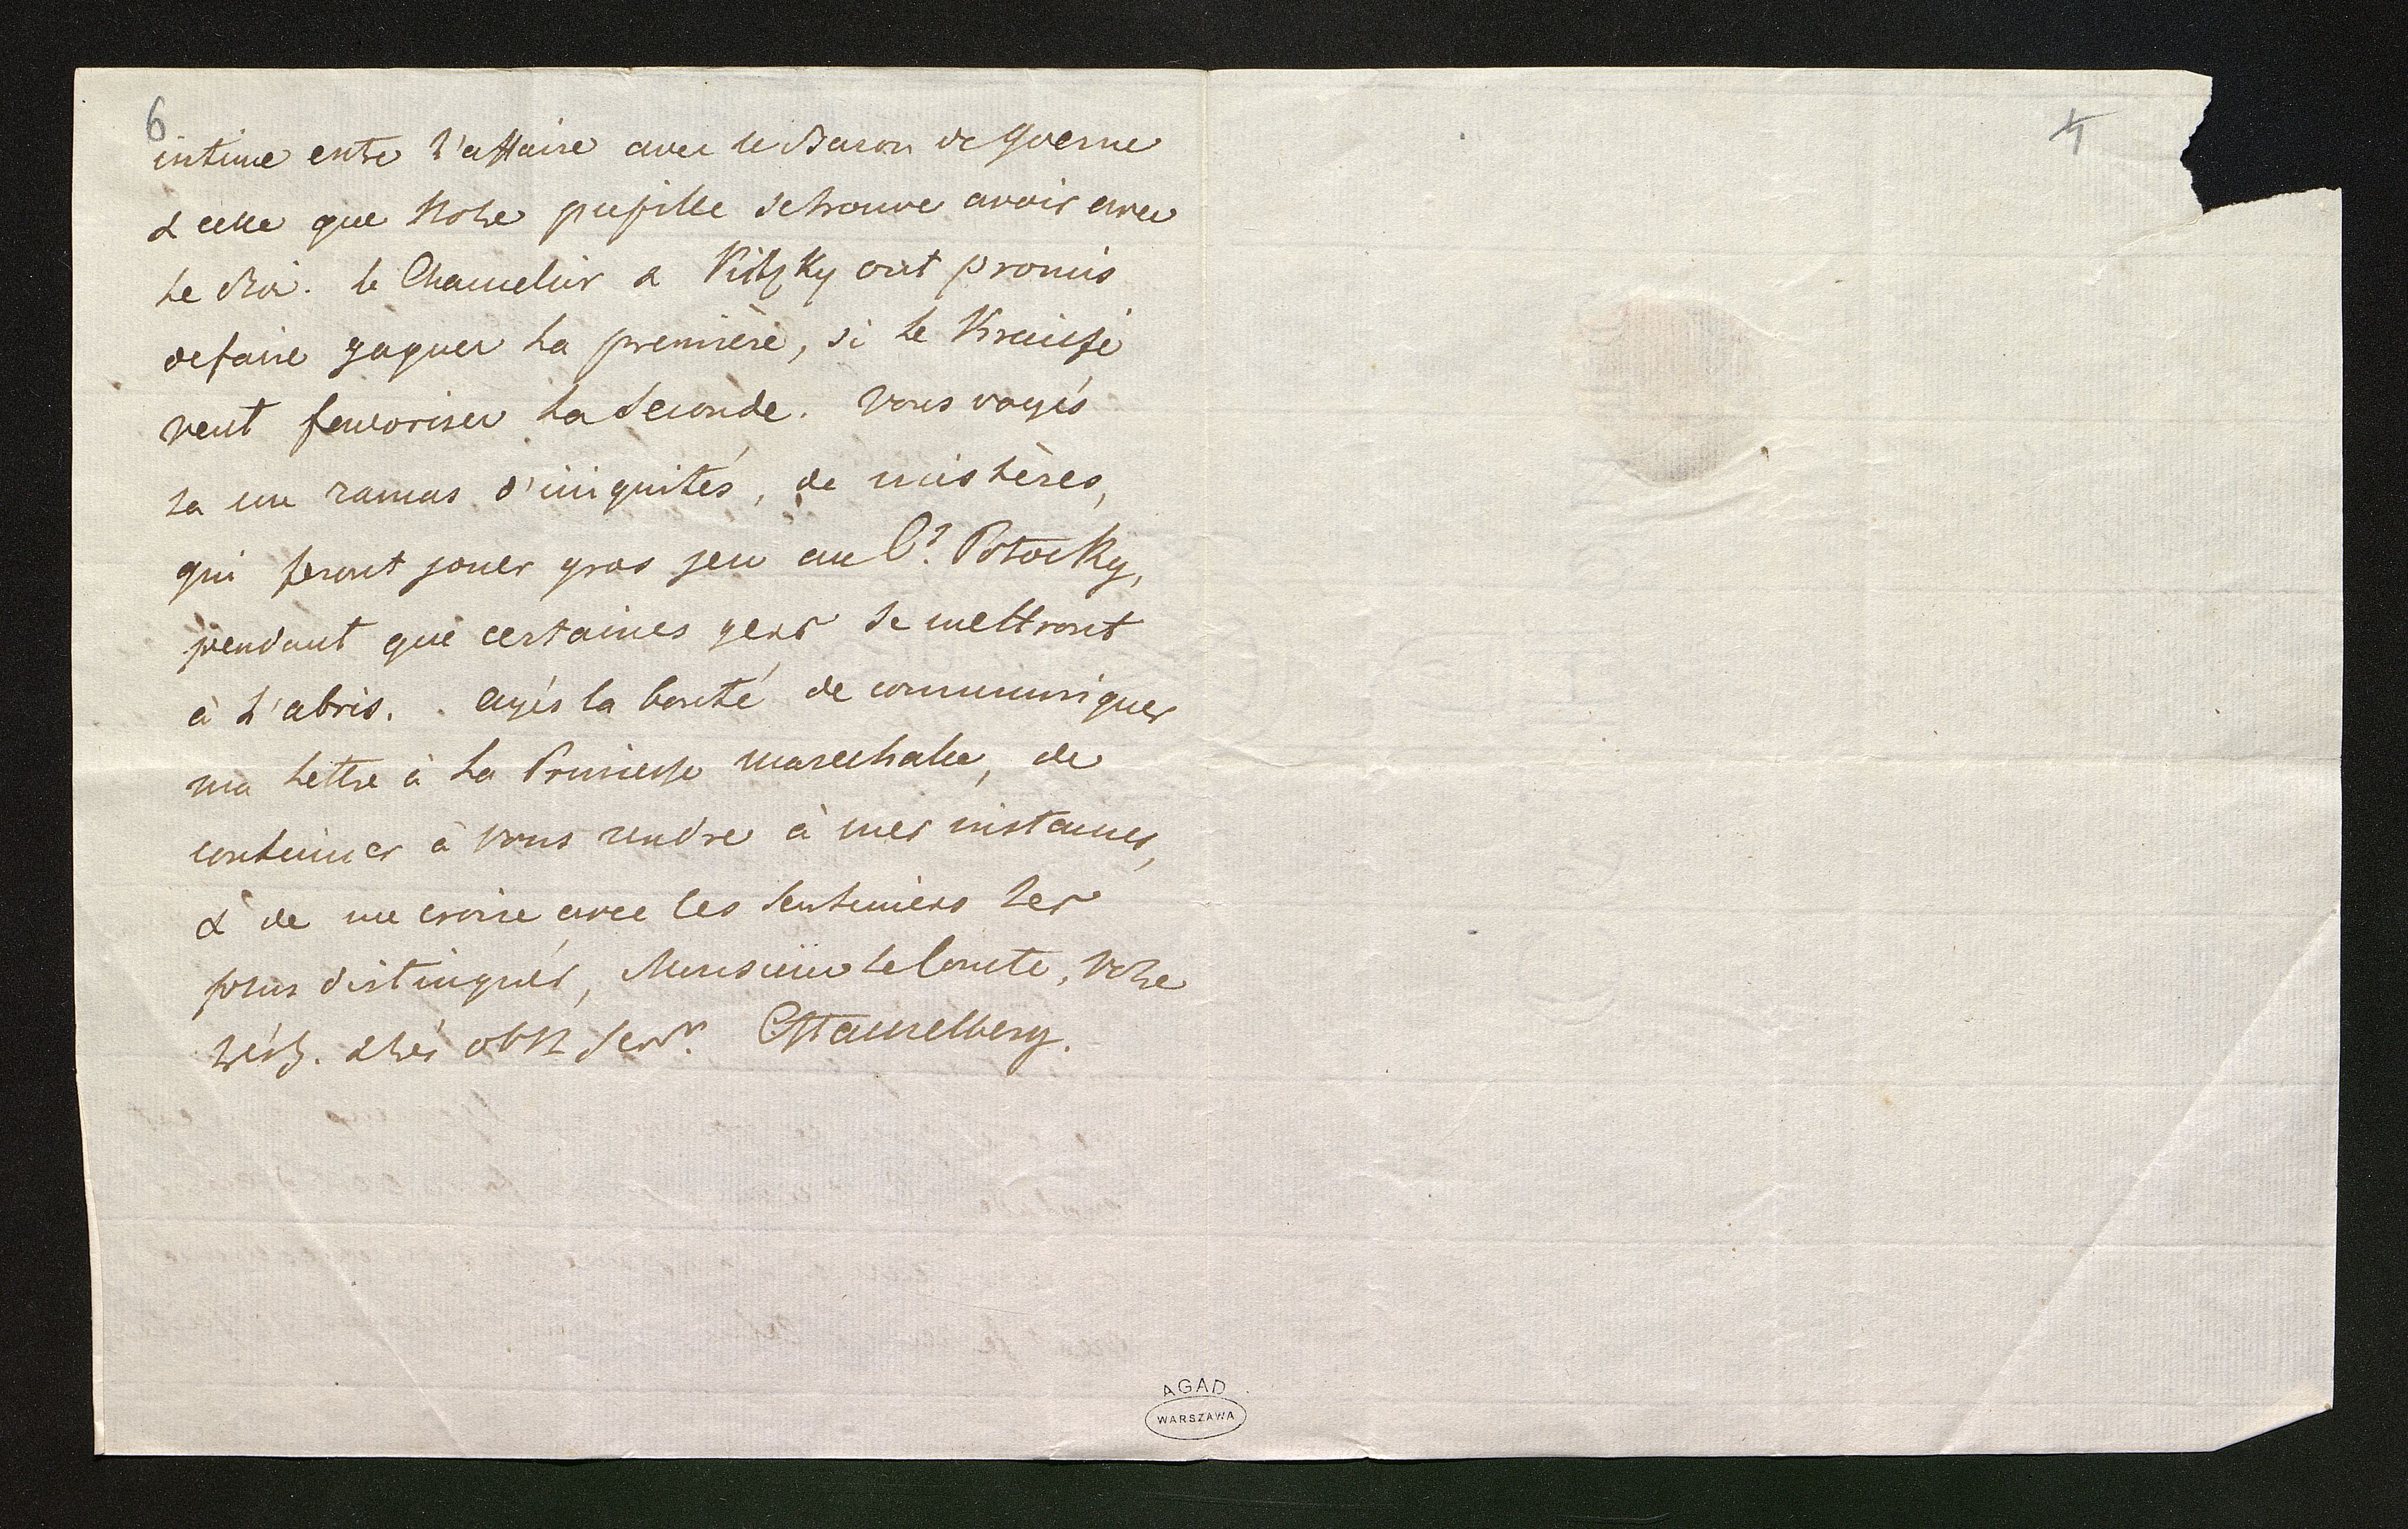 6
intime entre l'affaire avec le Baron de Goerne
& celle que Notre pupille se trouve avoir avec
le Roi. le Chancelier & Kitzky ont promis
de faire gagner la première, si le
veut favoriser la seconde. Vous voyés
la un ramas d'iniquités, de mistères,
qui feront jouer gros jeu au Cte. Potocky,
pendant que certaines gens se mettront
à l'abris. Ayés la bonté de communiquer
ma lettre à la Princesse marechale, de
continuer à vous rendre à mes instances,
& de me croire avec les sentimens les
plus distingués, Monsieur le Comte, Votre
très h. & très obt Servr. CStackelberg.
4
AGAD
WARSZAWA